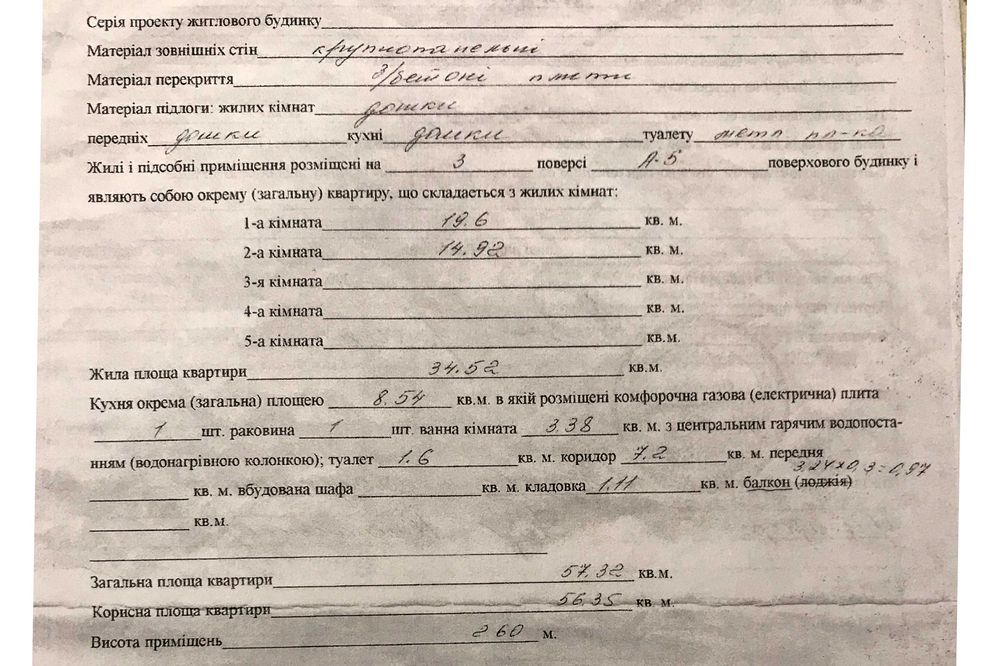 Серія проекту житлового будинку
Матеріал зовнішніх стін крупнопанельні
Матеріал перекриття з/бетоні плити
Матеріал підлоги: жилих кімнат дошки
передніх дошки кухні дошки туалету метл пл-ка
Жилі і підсобні приміщення розміщені на 3 поверсі А-5 поверхового будинку і
являють собою окрему (загальну) квартиру, що складається з жилих кімнат:
1-а кімната 19.6 кв. м.
2-а кімната 14.92 кв. м.
3-я кімната кв. м.
4-а кімната кв. м.
5-а кімната кв.м.
Жила площа квартири 34.52 кв.м.
Кухня окрема (загальна) площею 8.54 кв.м. в якій розміщені комфорочна газова (електрична) плита
1 шт. раковина 1 шт. ванна кімната 3.38 кв. м. з центральним гарячим водопоста-
нням (водонагрівною колонкою); туалет 1.6 кв. м. коридор 7.2 кв. м. передня
3,24х0,3=0,97
кв. м. вбудована шафа кв. м. кладовка 1.11 кв. м. балкон (лоджія)
кв.м.
Загальна площа квартири 57,32 кв.м.
Корисна площа квартири 56.35 кв. м.
Висота приміщень 2 60 м.